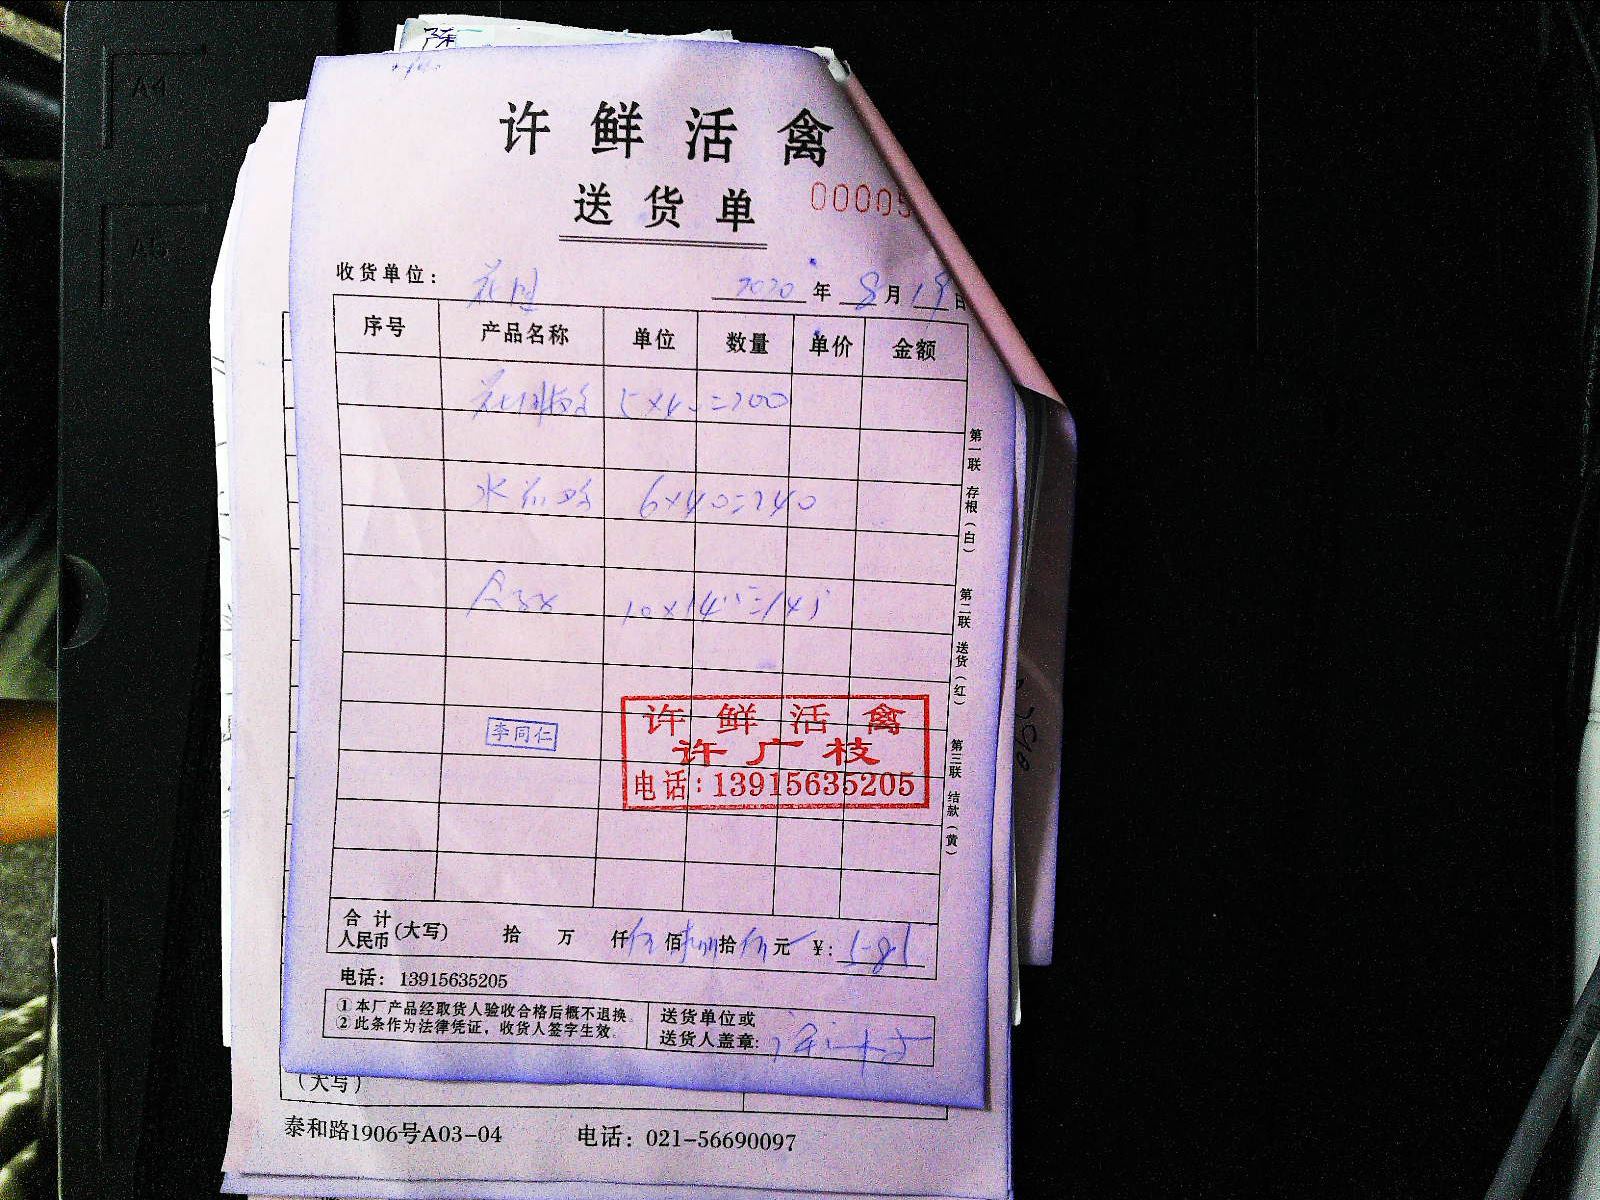 陈
许鲜活禽
送货单
00005
收货单位：花园 2020年8月19日
序号 产品名称 单位 数量 单价 金额
5×40=200
水 6×40=240
10×14
李同仁
许鲜活禽
许广枝
电话：13915635205
第一联 存根（白）
第二联 送货（红）
第三联 结款（黄）
合计人民币（大写） 拾 万 仟伍佰捌拾伍元 ￥：585
电话：13915635205
① 本厂产品经取货人验收合格后概不退换。
② 此条作为法律凭证，收货人签字生效。
送货单位或
送货人盖章：
（大写）
泰和路1906号A03-04 电话：021-56690097
A4
A5